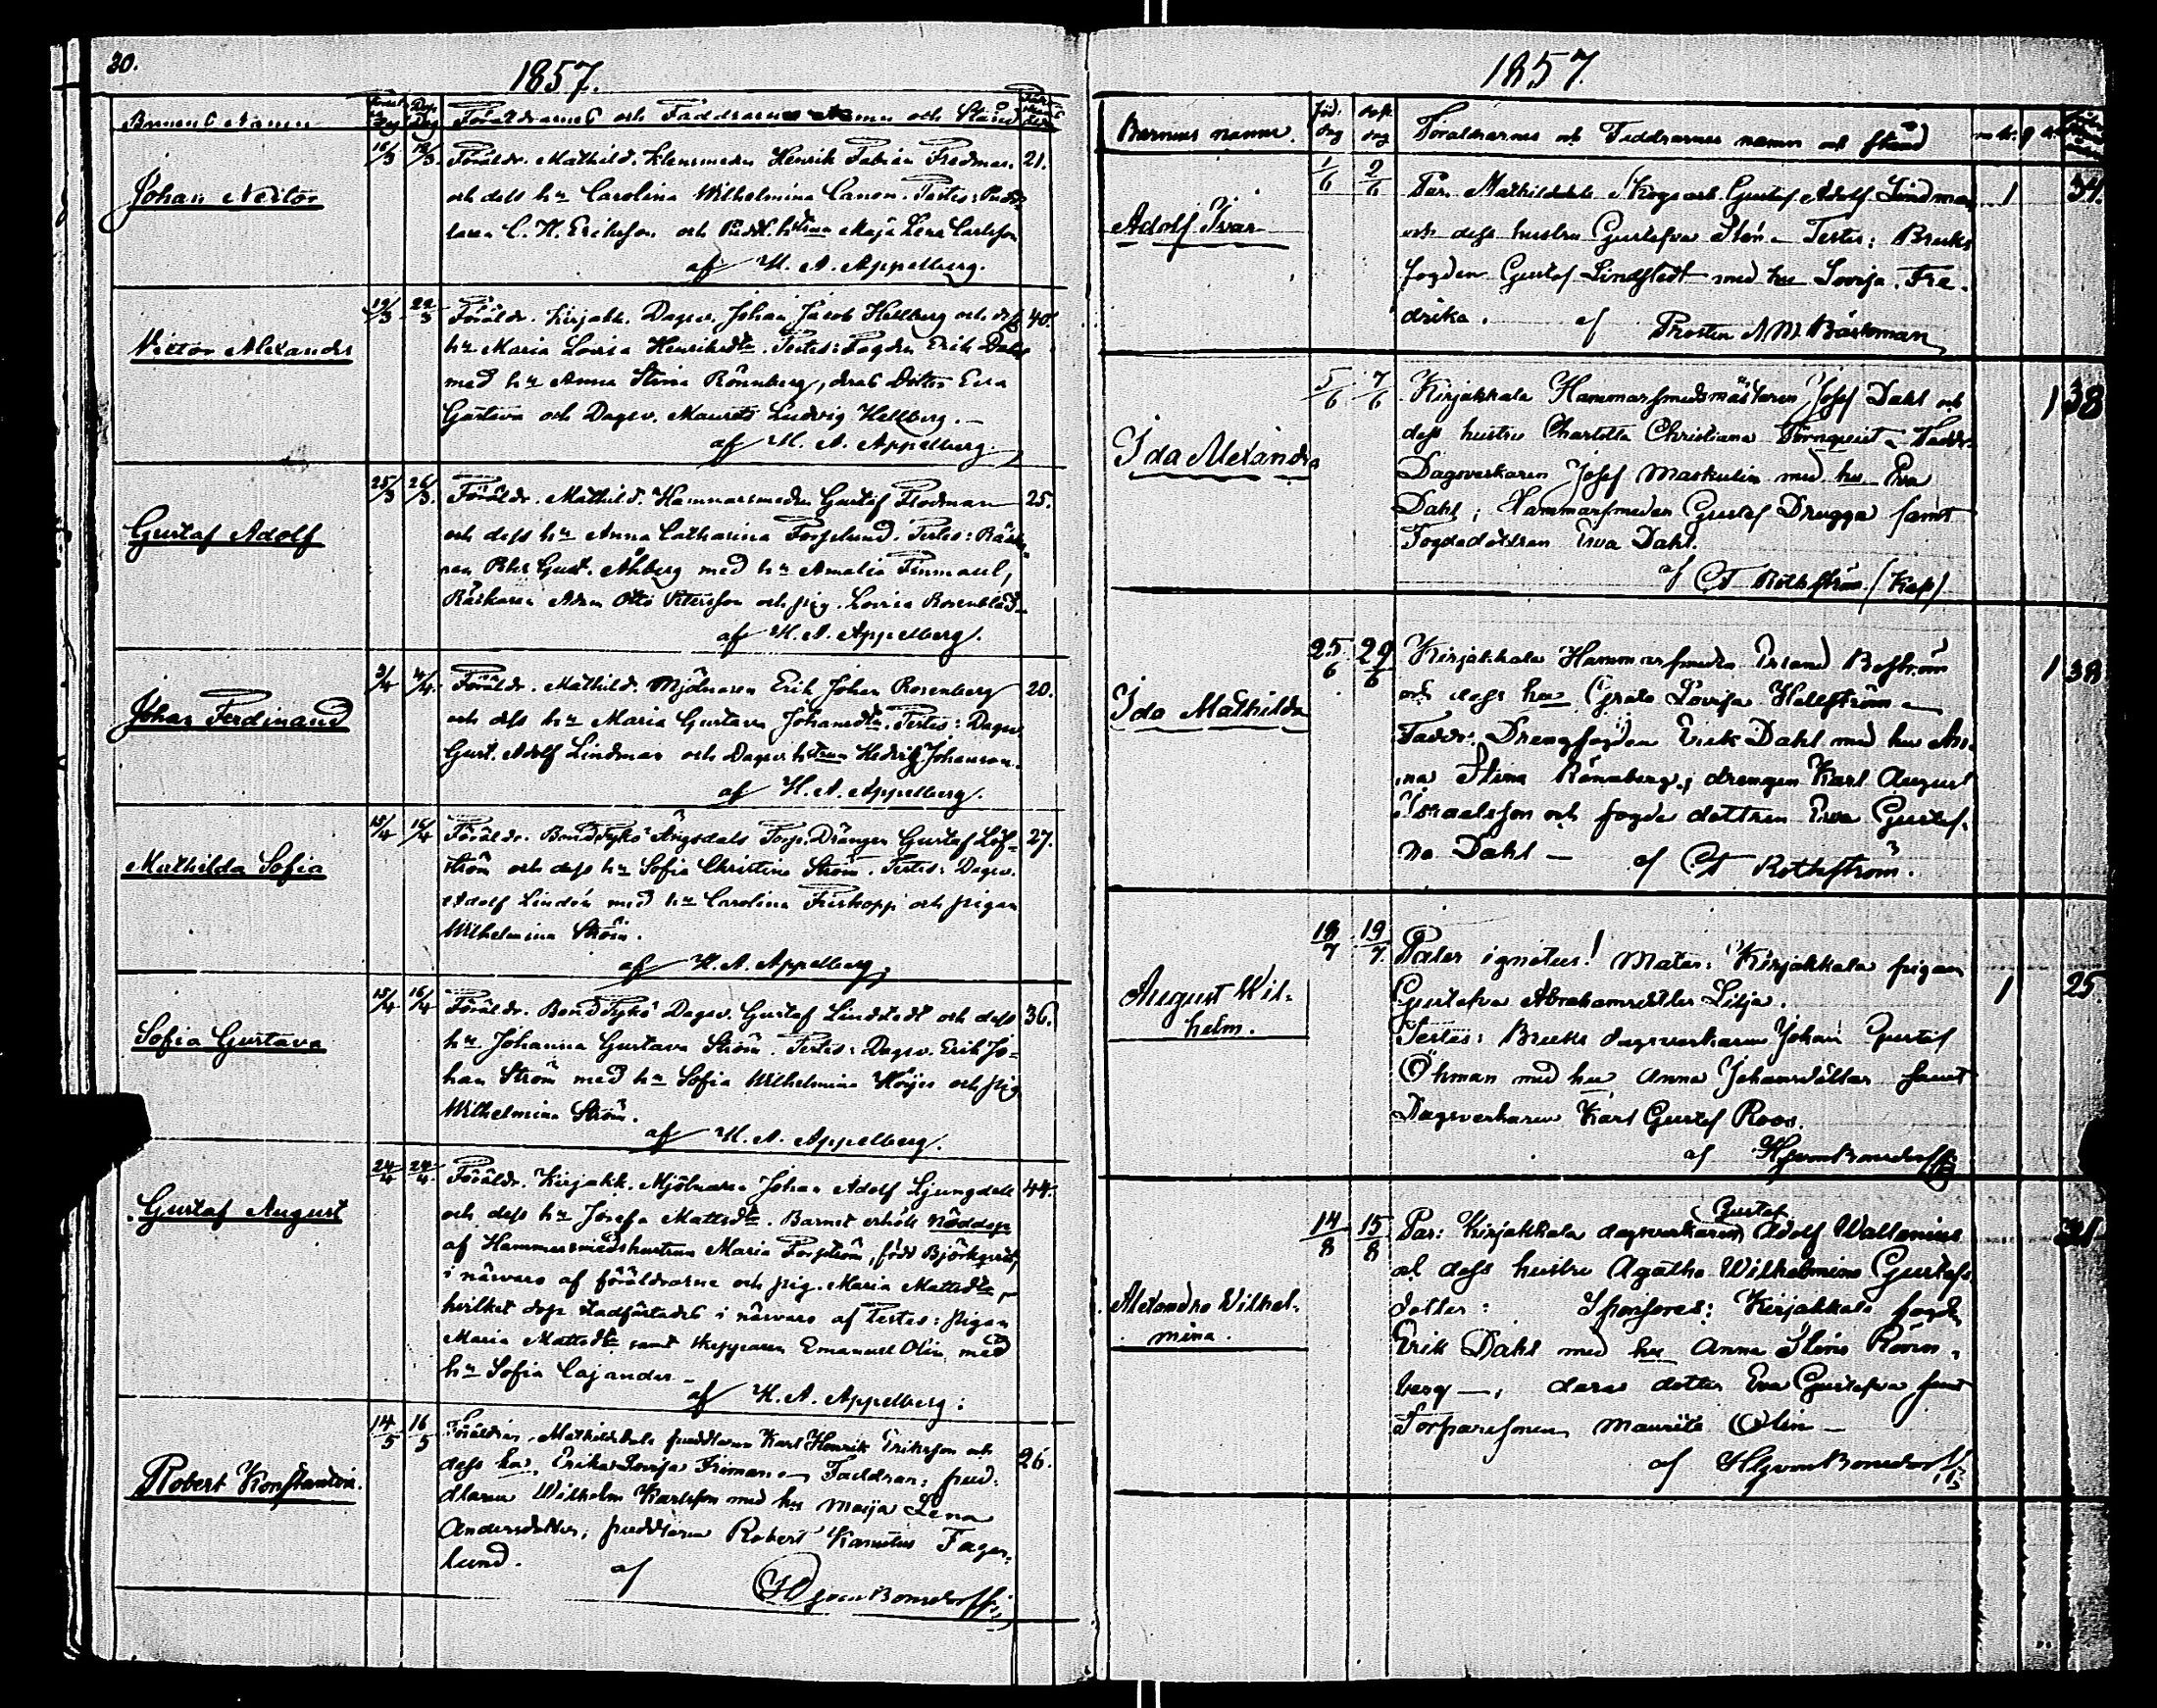 30.
1857.
Barnens Namn Födelse Dag Dop Dag Föräldrarnes och Faddrarnes Namn och Stånd
Johan Nestor 16/3 19/3. Föräldr. Mathild. Klensmeden Henrik Fabian Fredman. 21.
och dess hu Carolina Wilhelmina Canon. Testes: Pudd-
laren C. H. Eriksson och Puddl. hstrun Maja Lena Carlsson
af H. A. Appelberg.
Victor Alexander 19/3 22/3 Föräldr. Kirjakk. Dagsv. Johan Jacob Hellberg och dess 40.
hu Maria Lovisa Henriksdtr. Testes: Fogden Erik Dahl
med hu Anna Stina Rönnberg, deras Dotter Eva
Gustava och Dagsv. Maurits Ludvig Hellberg. -
af H. A. Appelberg.
Gustaf Adolf 25/3 26/3. Föräldr. Mathild. Hammarsmeden Gustaf Flodman 25.
och dess hu Anna Catharina Forselund. Testes: Räcka-
ren Petter Gust. Åhberg med hu Amalia
Räckaren Adam Otto Petersson och pig. Lovisa Rosenblad
af H. A. Appelberg.
Johan Ferdinand 3/4 4/4. Föräldr. Mathild. Mjölnaren Erik Johan Rosenberg 20.
och dess hu Maria Gustava Johansdtr. Testes: Dagsv.
Gust. Adolf Lindman och Dagsv. hstrun Hedvig Johanson.
af H. A. Appelberg.
Mathilda Sofia 15/4 16/4 Föräldr. Ängsdals Torp. Drängen Gustaf Löf- 27.
ström och dess hu Sofia Christina Ström. Testes: Dagsv.
Adolf Lindén med hu Carolina Friskopp och pigan
Wilhelmina Ström.
af H. A. Appelberg.
Sofia Gustava 15/4 16/4 Föräldr. Dagsv. Gustaf Lindstedt och dess 36.
hu Johanna Gustava Ström. Testes: Dagsv. Erik Jo-
han Ström med hu Sofia Wilhelmina Höijer och pig.
Wilhelmina Ström.
af H. A. Appelberg.
Gustaf August 24/4 24/4. Föräldr. Kirjakk. Mjölnaren Johan Adolf Ljungdell 44.
och dess hu Josefa Mattsdtr. Barnet erhöll nöddop
af Hammarsmedshustrun Maria Forsström, född Björkqvist,
i närvaro af föräldrarne och pig. Maria Mattsdtr,
hvilket dop stadfästades i närvaro af Testes: pigan
Maria Mattsdtr samt Skepparen Emanuel Olin med
hu Sofia Cajander -
af H. A. Appelberg.
Robert Konstantin. 14/5 16/5 Föräldrar, Mathildedals puddlaren Karl Henrik Eriksson och 26.
dess hu Erika Lovisa Friman - Faddrar: pud-
dlaren Wilhelm Karlsson med hu Maija Lena
Andersdotter; puddlaren Robert Fager-
lund. af
HG von Bonsdorff
1857.
Barnens namn. föd. dag dop. dag Föräldrarnes och Faddrarnes namn och stånd
Adolf Ivar 1/6 2/6 Par. Mathildedals Skogsark. Gustaf Adolf Lindman 1 34.
och dess hustru Gustafva Stén - Testes: Bruks
fogden Gustaf Lindstedt med hu Lovisa Fre-
drika. af Prosten A. M. Bäckman
Ida Alexandra 5/6 7/6 Kirjakkala Hammarsmedsmästaren Josef Dahl och 1 38
dess hustru Charlotta Christiana Törnqvist - Faddr.
Dagsverkaren Josef Maskulin med hu Eva
Dahl; Hammarsmeden Gustaf Drugga samt
Fogdedottran Eva Dahl.
af CF Rothström (Kap)
Ida Mathilda 25/6 29/6 Kirjakkala Hammarsmeden Erland Boström 1 38
och dess hu Greta Lovisa Hellström -
Faddr. Drengfogden Erik Dahl med hu An-
na Stina Rönnberg; drengen Karl August
Israelsson och fogde dottren Eva Gustaf-
va Dahl - af CF Rothström.
August Wil-
helm. 18/7 19/7 Pater ignotus! Mater: Kirjakkala pigan 1 25.
Gustafva Abrahamsdotter Lilja.
Testes: Bruks dagsverkaren Johan Gustaf
Öhman med hu Anna Johansdotter samt
Dagsverkaren Karl Gustaf Roos.
af HG von Bonsdorff
Alexandra Wilhel-
mina. 14/8 15/8 Par: Kirjakkala dagsverkaren Gustaf Adolf Wallenius
och dess hustru Agatha Wilhelmina Gustafs
dotter: Sponsores: Kirjakkala fogden
Erik Dahl med hu Anna Stina Rönn-
berg -, deras dotter Eva Gustafva samt
Torparesonen Maurits Olin -
af HG von Bonsdorff